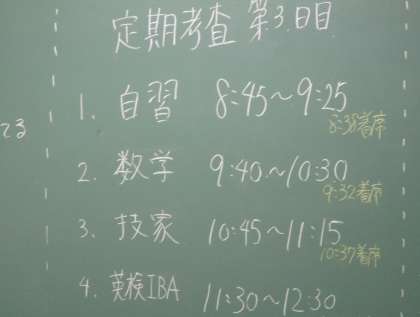 定期考査 第3日目
1. 自習 8:45～9:25
8:38着席
2. 数学 9:40～10:30
9:32着席
3. 技家 10:45～11:15
10:37着席
4. 英検IBA 11:30～12:30
てる